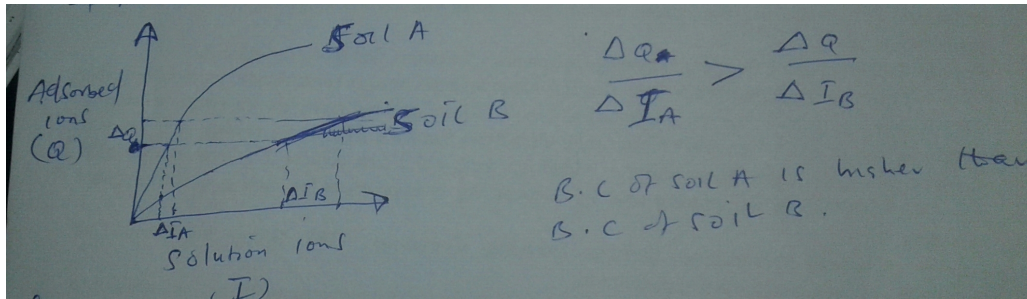 Soil A
Adsorbed
ions
(Q)
ΔQ
Soil B
ΔI_A
ΔI_B
Solution ions
(I)
ΔQ
ΔI_A
>
ΔQ
ΔI_B
B.C of soil A is higher than
B.C of soil B.